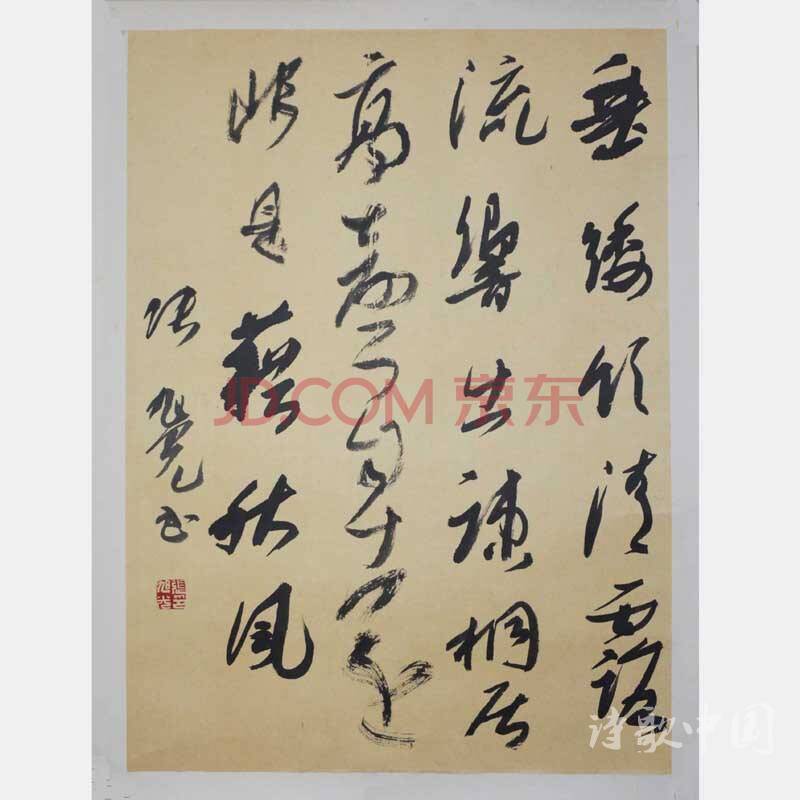 垂緌饮清露
流響出疎桐居
高聲自遠
非是藉秋風
张旭光书
JD.COM 京东
诗歌中国